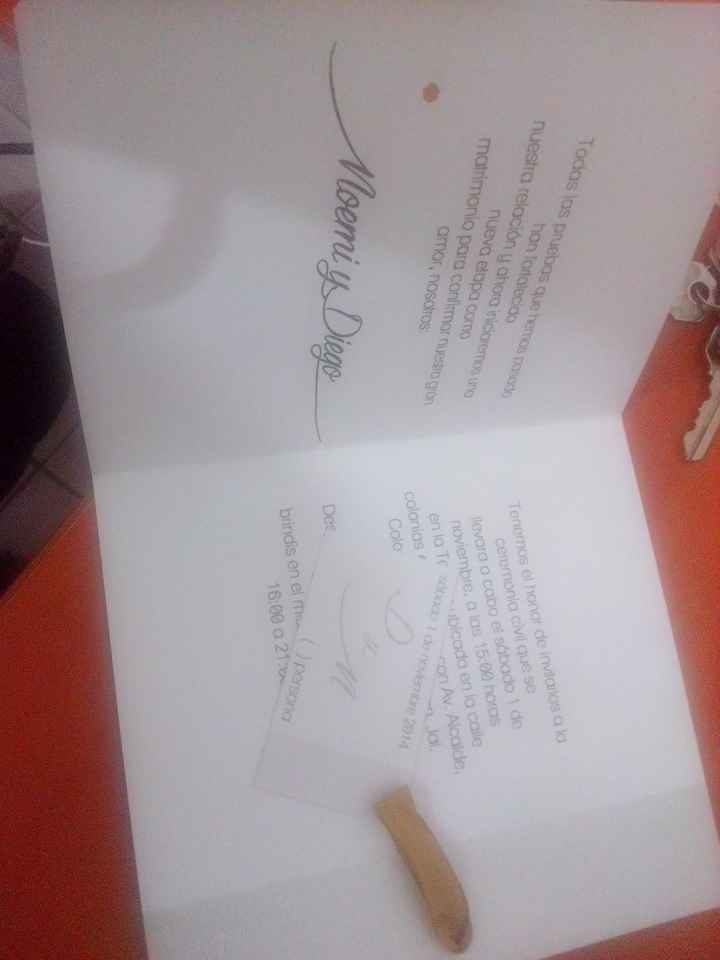 Todas las pruebas que hemos pasado
han fortalecido
nuestra relación y ahora iniciaremos una
nueva etapa como
matrimonio para confirmar nuestro gran
amor, nosotros:
Noemi y Diego
Tenemos el honor de invitarlos a la
ceremonia civil que se
llevara a cabo el sábado 1 de
noviembre, a las 15:00 horas
en la ubicada en la calle
colonias con Av. Alcalde,
brindis en el
16:00 a 21
sábado 1 de noviembre 2014
( ) persona